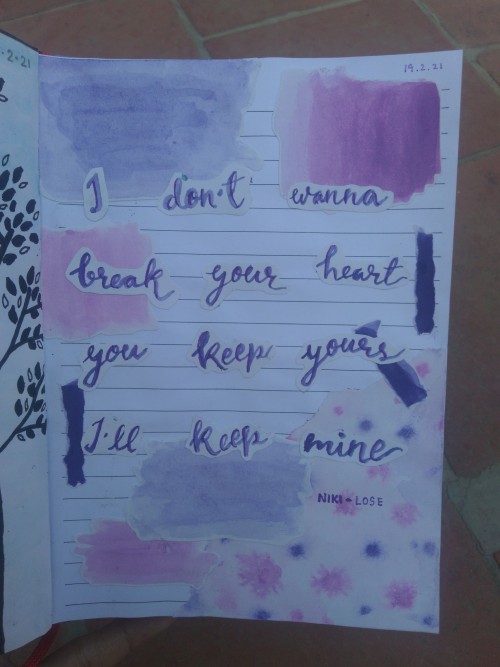 .2.21
19.2.21
I don't wanna
break your heart
you keep yours
I'll keep mine
NIKI - LOSE